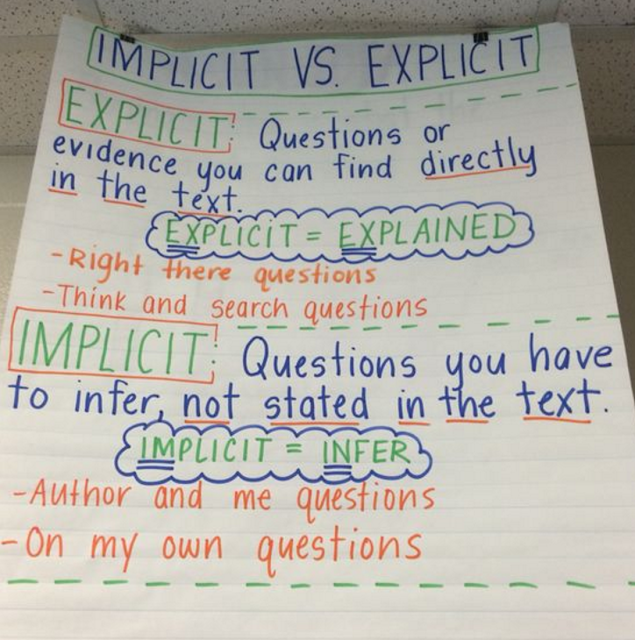 IMPLICIT VS. EXPLICIT
EXPLICIT: Questions or
evidence you can find directly
in the text.
EXPLICIT = EXPLAINED
-Right there questions
-Think and search questions
IMPLICIT: Questions you have
to infer, not stated in the text.
IMPLICIT = INFER
-Author and me questions
-On my own questions